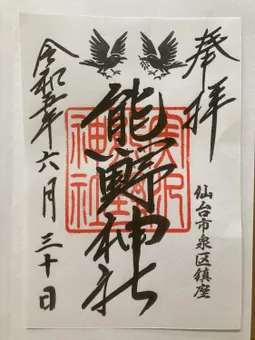 奉拝
仙台市泉区鎮座
熊野神社
令和五年六月三十日